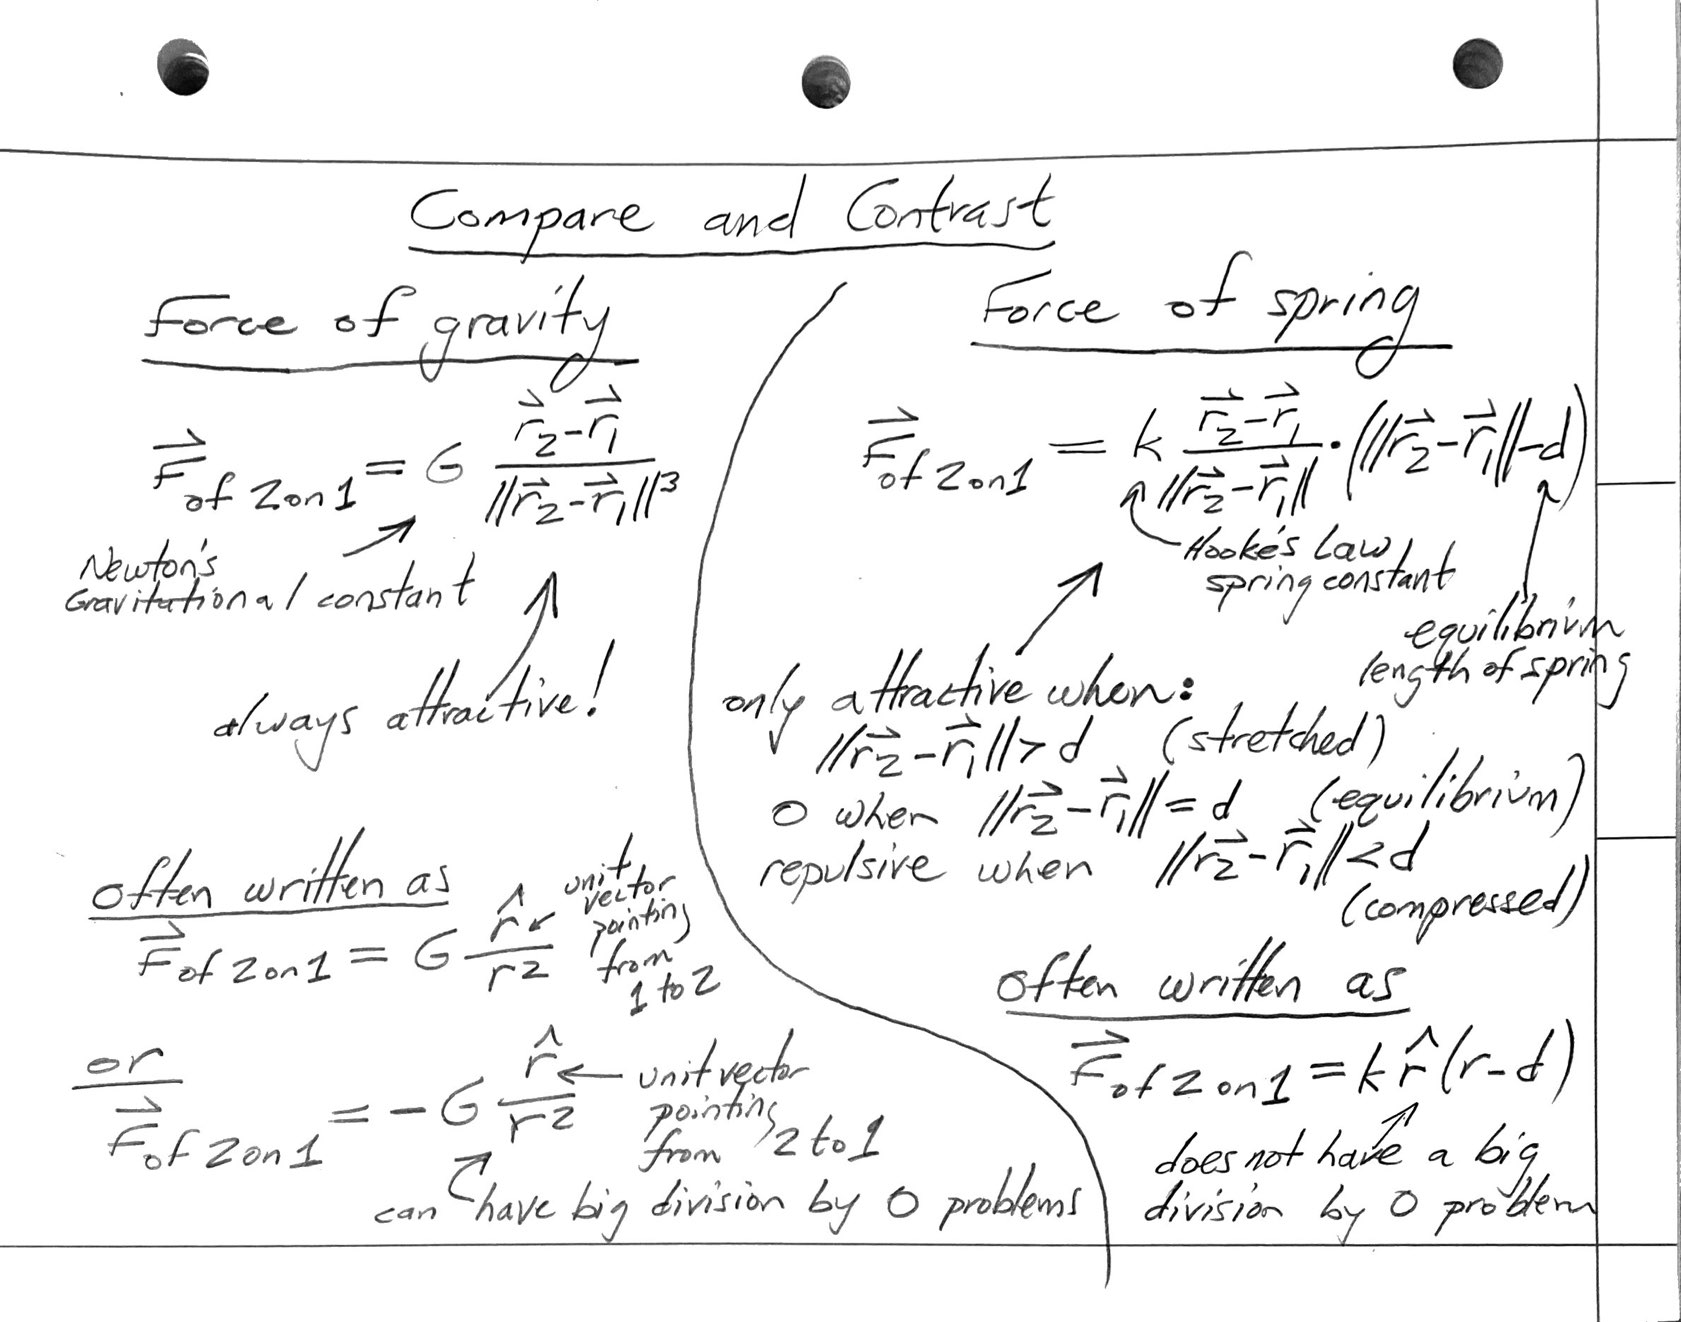 Compare and Contrast
Force of gravity
F⃗ of 2 on 1 = G (r⃗₂ - r⃗₁) / ||r⃗₂ - r⃗₁||³
Newton's
Gravitational constant
always attractive!
often written as
F⃗ of 2 on 1 = G r̂ / r²
unit
vector
pointing
from
1 to 2
or
F⃗ of 2 on 1 = - G r̂ / r²
unit vector
pointing
from 2 to 1
can have big division by 0 problems
Force of spring
F⃗ of 2 on 1 = k (r⃗₂ - r⃗₁) / ||r⃗₂ - r⃗₁|| · (||r⃗₂ - r⃗₁|| - d)
Hooke's Law
spring constant
equilibrium
length of spring
only attractive when:
||r⃗₂ - r⃗₁|| > d (stretched)
0 when ||r⃗₂ - r⃗₁|| = d (equilibrium)
repulsive when ||r⃗₂ - r⃗₁|| < d
(compressed)
often written as
F⃗ of 2 on 1 = k r̂ (r - d)
does not have a big
division by 0 problem